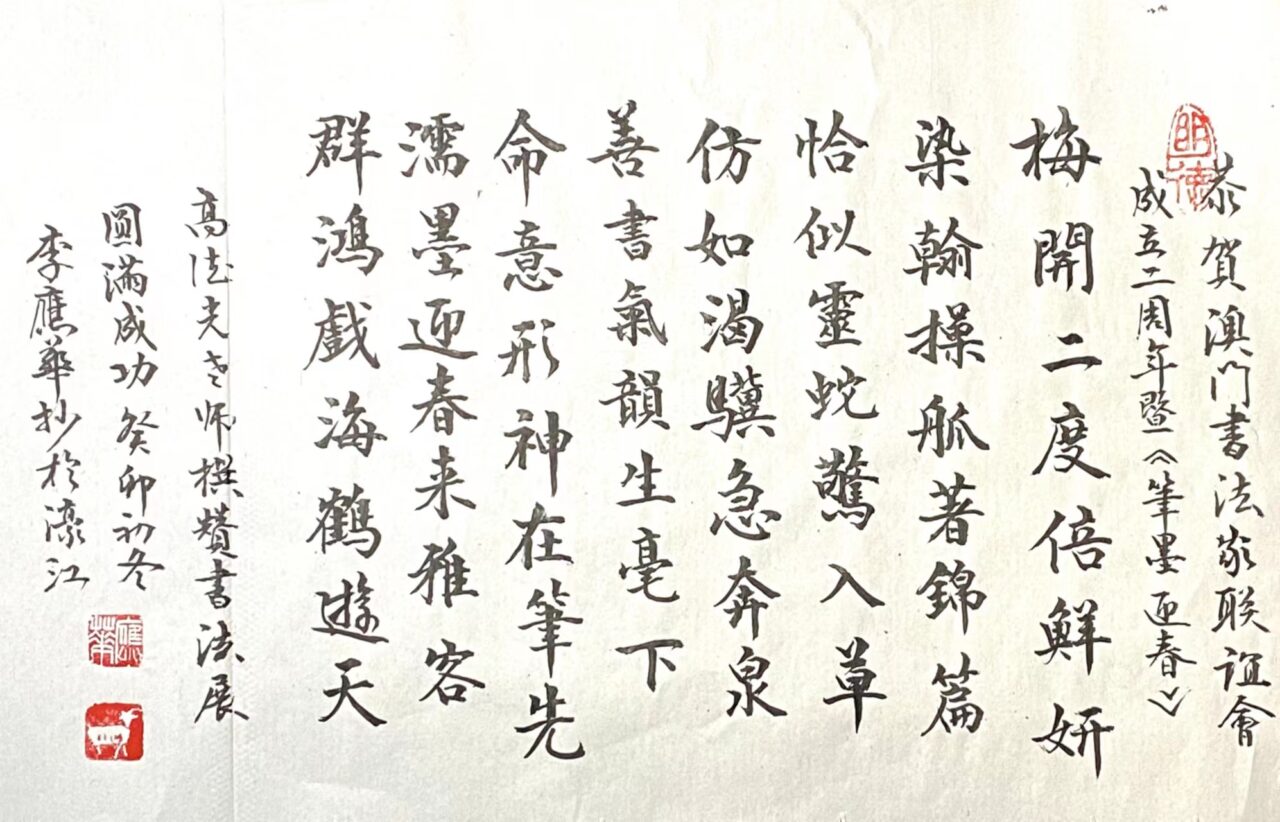 恭賀澳門書法家联誼會
成立二周年暨《筆墨迎春》
梅開二度倍鮮妍
染翰操觚著錦篇
恰似靈蛇驚入草
仿如渴驥急奔泉
善書氣韻生毫下
命意形神在筆先
濡墨迎春来雅客
群鴻戲海鶴遊天
高法光老师撰贊書法展
圓滿成功癸卯初冬
李應華抄於濠江
明德
應華